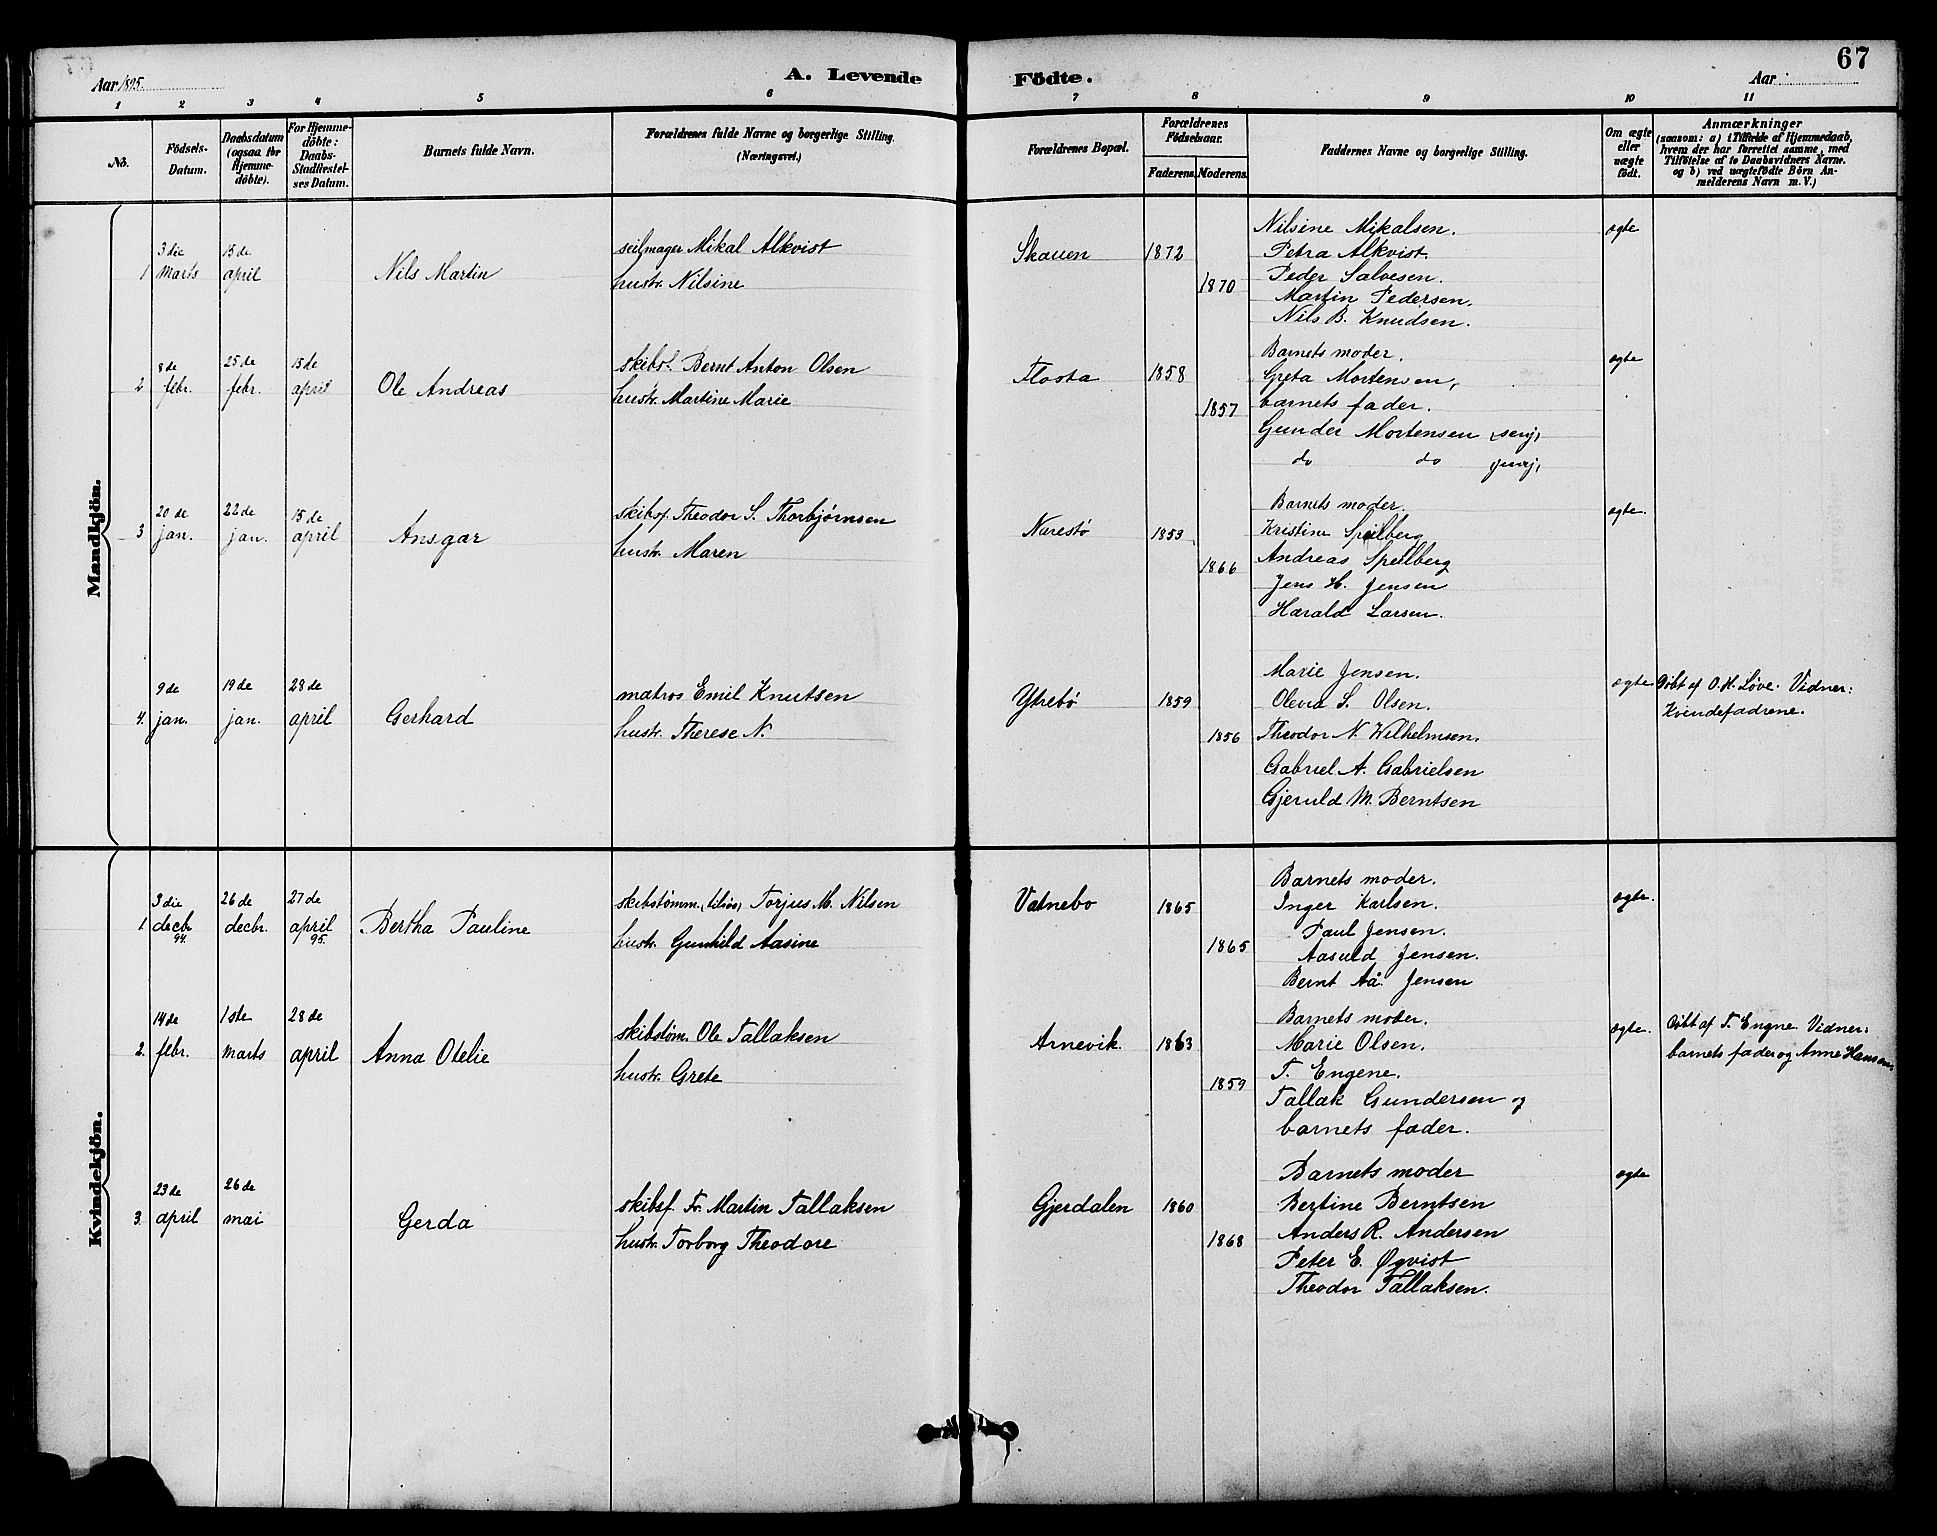 67
Aar 1895. A. Levende Födte. Aar
1 2 3 4 5 6 7 8 9 10 11
No.
Födsels-Datum.
Daabsdatum (ogsaa for Hjemmedöbte).
For Hjemmedöbte: Daabs-Stadfæstelses Datum.
Barnets fulde Navn.
Forældrenes fulde Navne og borgerlige Stilling. (Næringsvei.)
Forældrenes Bopæl.
Forældrenes Födselsaar.
Faderens. Moderens.
Faddernes Navne og borgerlige Stilling.
Om ægte eller uægte födt.
Anmærkninger
(saasom: a) i Tilfælde af Hjemmedaab, hvem der har forrettet samme, med Tilföielse af to Daabsvidners Navne. og b) ved uægtefødte Börn Anmelderens Navn m. V.)
Mandkjön.
1 3die marts 15de april Nils Martin
seilmager Mikal Alkvist
hustr. Nilsine
Skauen 1872 1870
Nilsine Mikalsen.
Petra Alkvist.
Peder Salvesen.
Martin Pedersen.
Nils B. Knudsen.
ægte
2 8de febr. 25de febr. 15de april Ole Andreas
skibsf. Bernt Anton Olsen
hustr. Martine Marie
Flosta 1858 1857
Barnets moder.
Greta Mortensen,
barnets fader.
Gunder Mortensen senj,
do do junj,
ægte
3 20de jan. 22de jan. 15de april Ansgar
skibsf. Theodor S. Thorbjørnsen
hustr. Maren
Narestø 1859 1866
Barnets moder.
Kristine Speilberg
Andreas Speilberg
Jens H. Jensen
Harald Larsen.
ægte.
4. 9de jan. 19de jan. 28de april Gerhard
matros Emil Knutsen
hustr. Therese N.
Ytrebø 1859 1856
Marie Jensen.
Olevia S. Olsen.
Theodor N. Wilhelmsen.
Gabriel A. Gabrielsen
Gjeruld M. Berntsen
ægte
Døbt af O. H. Løve. Vidner:
Kvindefadrene.
Kvindekjön.
1 3die decbr. 94. 26de decbr. 27de april 95. Bertha Pauline
skibstømm. Torjus M. Nilsen
hustr. Gunhild Aasine
Vatnebo 1865 1865
Barnets moder.
Inger Karlsen.
Paul Jensen.
Aasuld Jensen.
Bernt Aa. Jensen
ægte.
2. 14de febr. 1ste marts 28de april Anna Otelie
skibstøm. Ole Tallaksen
hustr. Grete
Arnevik. 1863 1859
Barnets moder.
Marie Olsen.
T. Engene.
Tallak Gundersen og
barnets fader.
ægte.
Døbt af T. Engne. Vidner:
barnets fader og Anne Hansen
3. 23de april 26de mai Gerda
skibsf. Fr. Martin Tallaksen
hustr. Torborg Theodore
Gjerdalen 1860 1868
Barnets moder
Bertine Berntsen
Anders R. Andersen
Peter E. Øqvist
Theodor Tallaksen.
ægte